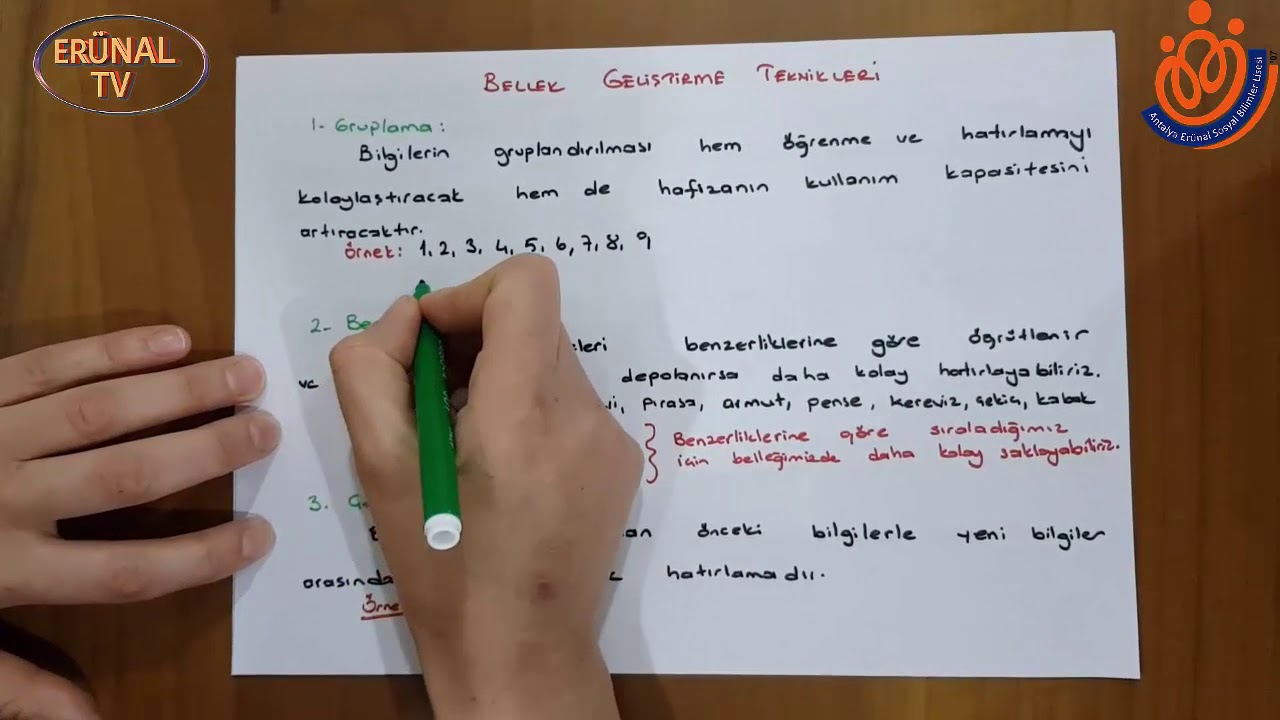 ERÜNAL
TV
Antalya Erünal Sosyal Bilimler Lisesi
BELLEK GELİŞTİRME TEKNİKLERİ
1- Gruplama:
Bilgilerin gruplandırılması hem öğrenme ve hatırlamayı
kolaylaştıracak hem de hafızanın kullanım kapasitesini
artıracaktır.
Örnek: 1, 2, 3, 4, 5, 6, 7, 8, 9
2-
benzerliklerine göre ögrütlenir
ve depolanırsa daha kolay hatırlayabiliriz.
pırasa, armut, pense, kereviz, çekiç, kabak
Benzerliklerine göre sıraladığımız
için belleğimizde daha kolay saklayabiliriz.
3.
önceki bilgilerle yeni bilgiler
arasında hatırlamadır.